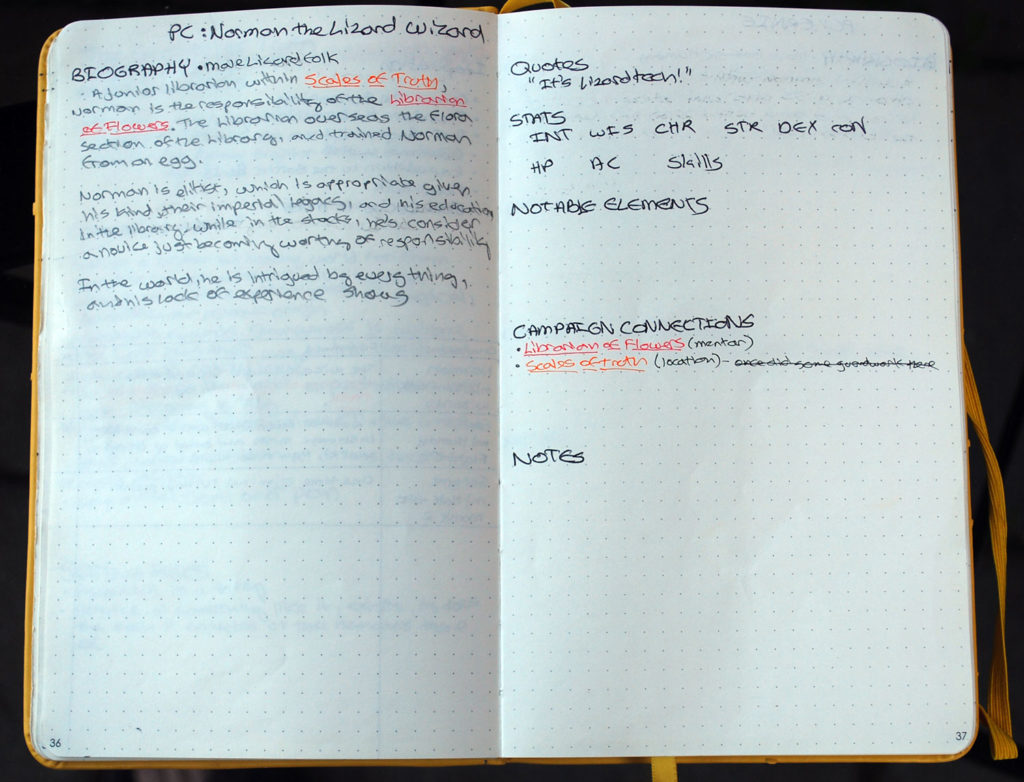 PC: Norman the Lizard Wizard
BIOGRAPHY • male Lizardfolk
A junior librarian within Scales of Truth,
Norman is the responsibility of the Librarian
of Flowers. The Librarian overseas the Flora
section of the library, and trained Norman
from an egg.
Norman is elitist, which is appropriate given
his kind, their imperial legacy, and his education
in the library. While in the stacks, he's consider
a novice just becoming worthy of responsibility
In the world, he is intrigued by everything,
and his lack of experience shows
36
Quotes
"It's lizardtech!"
STATS
INT WIS CHR STR DEX CON
HP AC Skills
NOTABLE ELEMENTS
CAMPAIGN CONNECTIONS
• Librarian of Flowers (mentor)
• Scales of Truth (location) - once did some guardwork there
NOTES
37